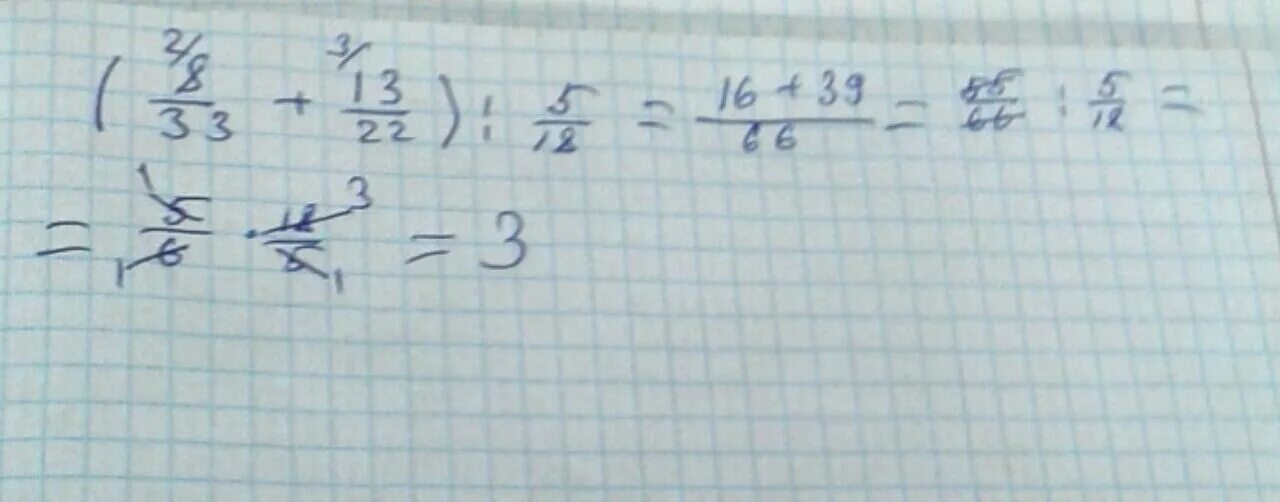 ( 2/ 8/33 + 3/ 13/22 ) : 5/12 = 16 + 39/66 = 55/66 : 5/12 =
= 1 5/6 1 · 12/5 3 1 = 3